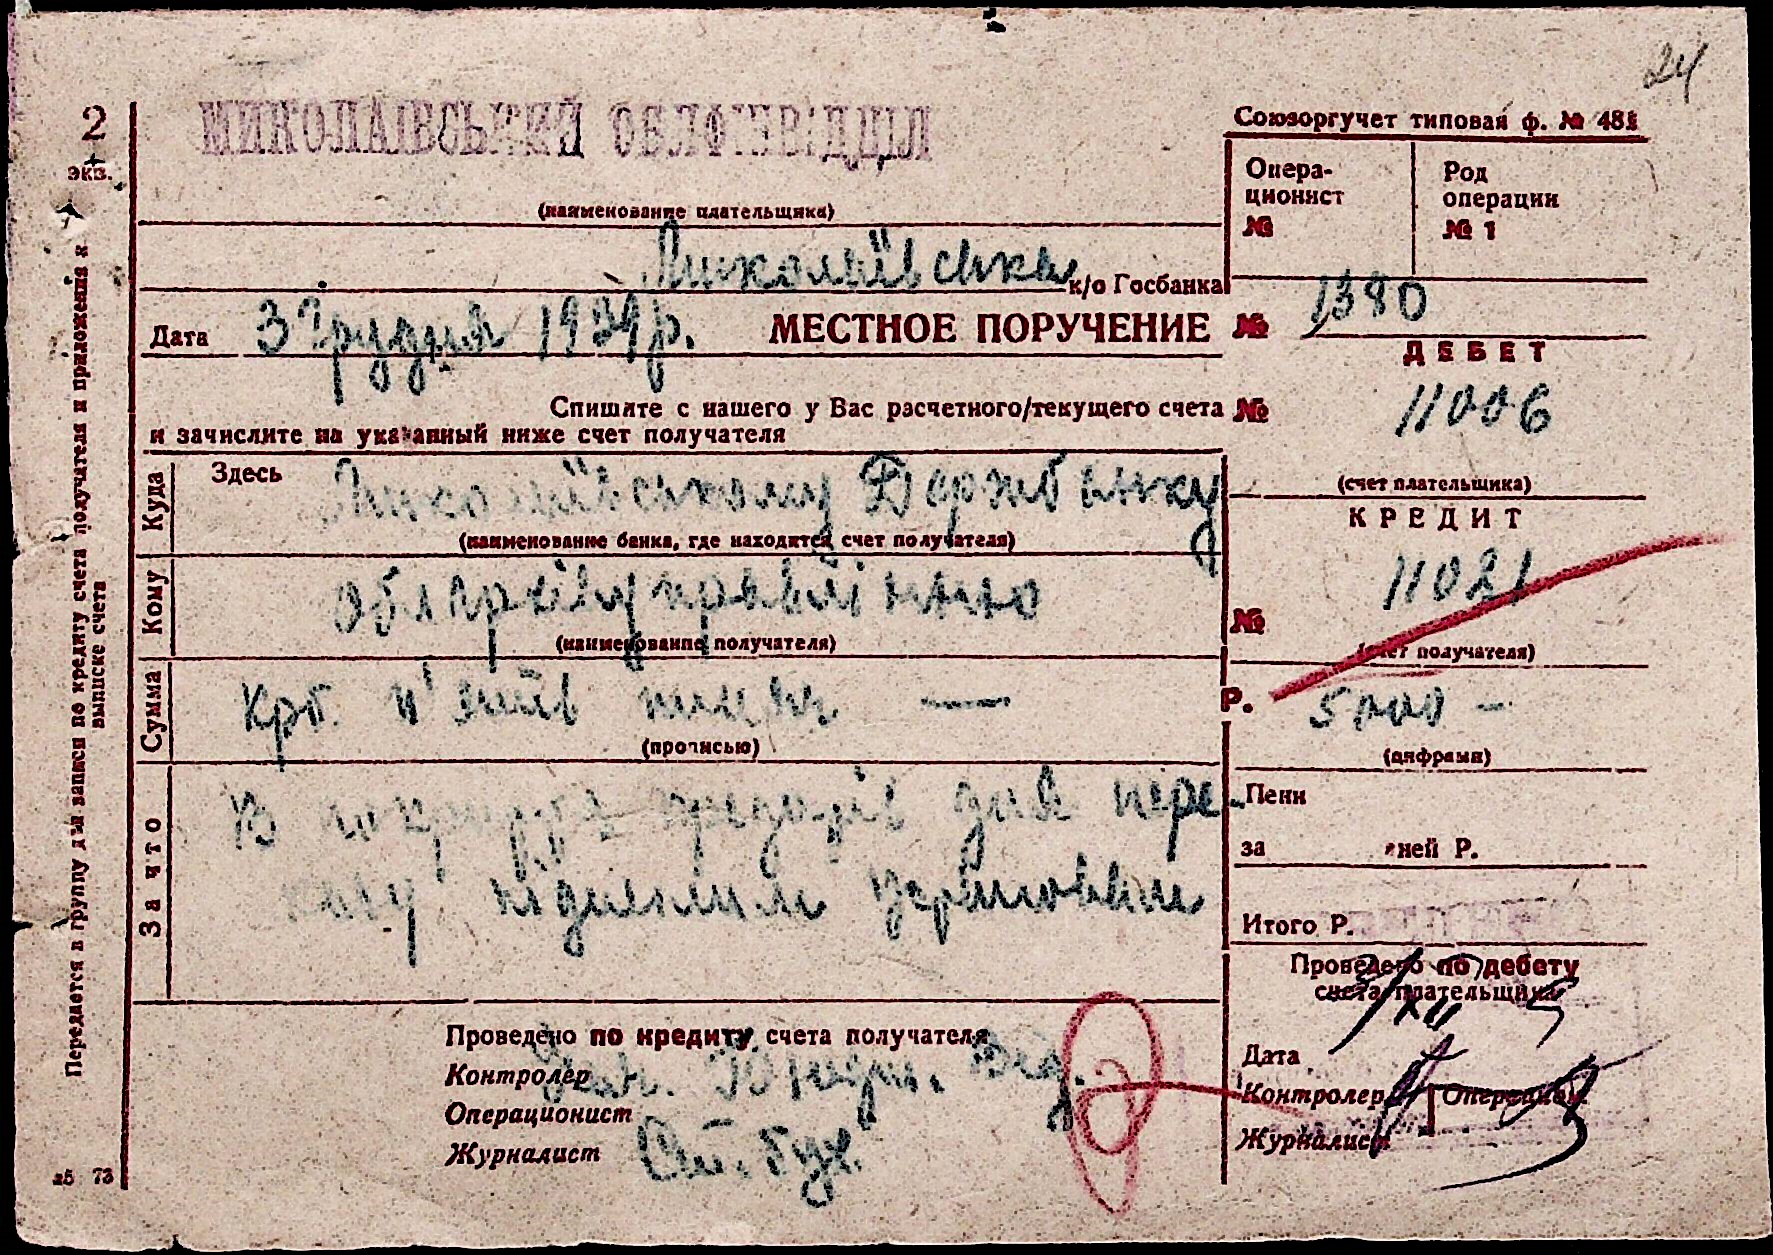 24
2
экз.
МИКОЛАЇВСЬКИЙ ОБЛФІНВІДДІЛ
Союзоргучет типовая ф. № 481
(наименование плательщика)
Опера-
ционист
№
Род
операции
№ 1
Миколаївська к/о Госбанка
Дата 3 Грудня 1939 р. МЕСТНОЕ ПОРУЧЕНИЕ № 1380
ДЕБЕТ
Спишите с нашего у Вас расчетного/текущего счета № 11006
и зачислите на указанный ниже счет получателя
(счет плательщика)
Куда
Здесь Миколаївському Держбанку
(наименование банка, где находится счет получателя)
КРЕДИТ
№ 11021
(счет получателя)
Кому
Облархівуправлінню
(наименование получателя)
Сумма
Крб. п'ять тисяч —
(прописью)
Р. 5000 —
(цифрами)
За что
В дня пере
Пени
за дней Р.
Итого Р.
Проведено по дебету
счета плательщика
3/XII
Дата
Контролер Операцион.
Журналист
Проведено по кредиту счета получателя
Контролер
Операционист
Журналист
Ст. бух.
Передается в группу для записи по кредиту счета получателя и приложения к
выписке счета
73